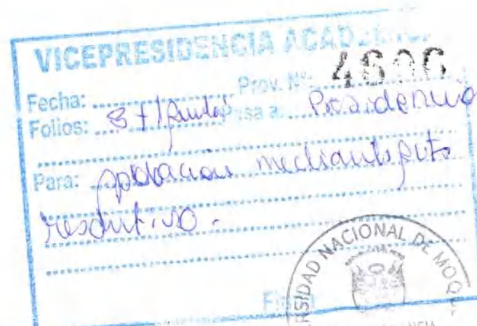 VICEPRESIDENCIA ACAD
Prov. Nº: 4696
Fecha:
Folios: 8 + 1 Pasa a: Presidencia
Para: aprobacion mediante acto
resolutivo.
Firma
UNIVERSIDAD NACIONAL DE MOQ